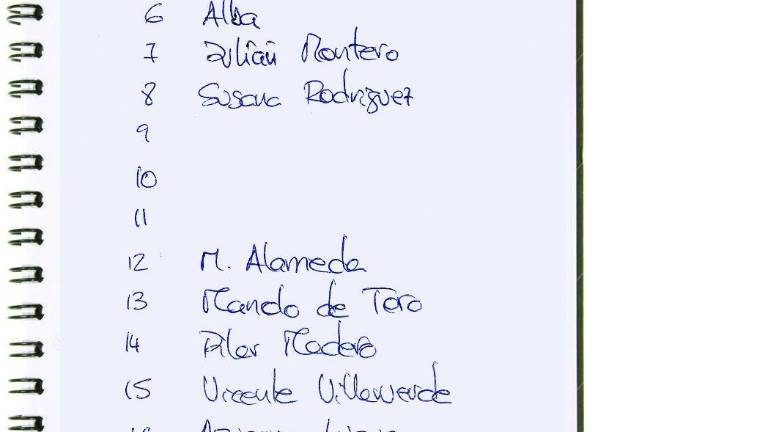 6 Alba
7 Julián Montero
8 Susana Rodríguez
9
10
11
12 M. Alameda
13 Nando de Toro
14 Pilar Madero
15 Vicente Villaverde